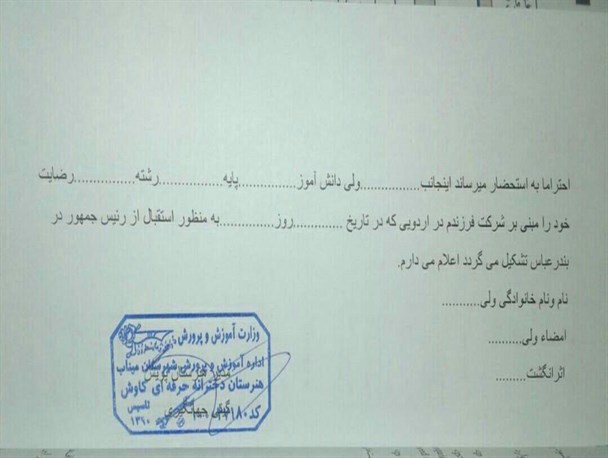 احتراما به استحضار میرساند اینجانب................ولی دانش آموز...............پایه.................رشته................رضایت
خود را مبنی بر شرکت فرزندم در اردویی که در تاریخ .............روز..............به منظور استقبال از رئیس جمهور در
بندرعباس تشکیل می گردد اعلام می دارم.
نام ونام خانوادگی ولی...........
امضاء ولی..........
اثرانگشت.........
وزارت آموزش و پرورش
اداره آموزش و پرورش شهرستان میناب
هنرستان دخترانه حرفه ای کاوش
تاسیس
۱۳۹۰